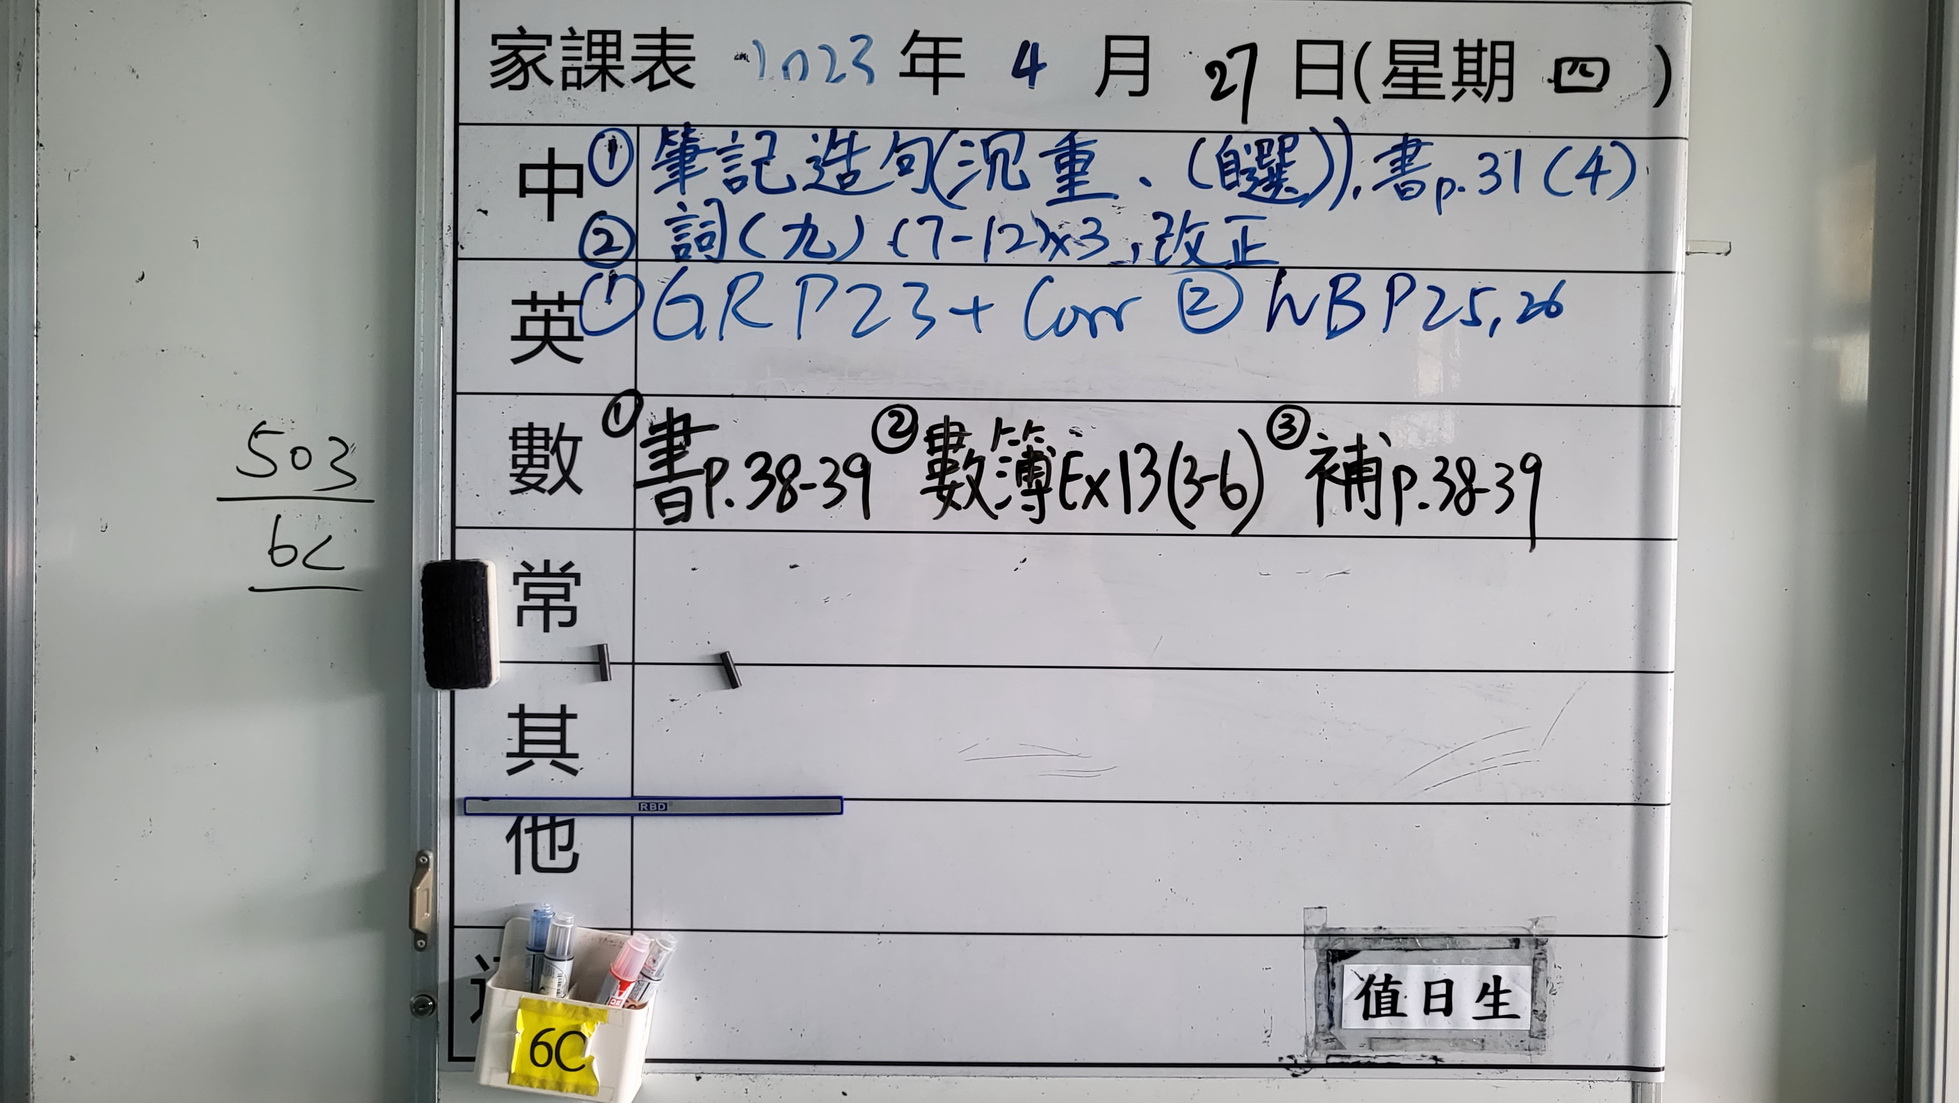 家課表 2023年 4月 27日(星期 四)
中 ① 筆記造句(沉重、(自選)), 書p.31(4)
② 詞(九)(7-12)x3, 改正
英 ① GR P23 + Corr ② WB P25,26
數 ① 書p.38-39 ② 數簿Ex13(3-6) ③ 補p.38-39
503
6C
常
其他
RBD
6C
值日生